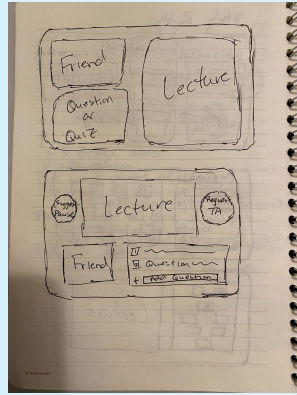 Friend
Question
or
Quiz
Lecture
Suggest
Pause
Lecture
Request
TA
Friend
Question
+ Add Question